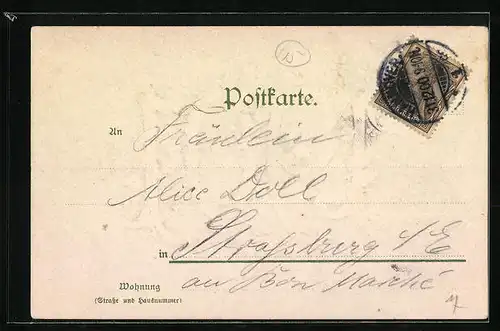 Postkarte.
An Fräulein
Alice Doll
in Strassburg i/E
au Bon Marché
Wohnung
(Straße und Hausnummer)